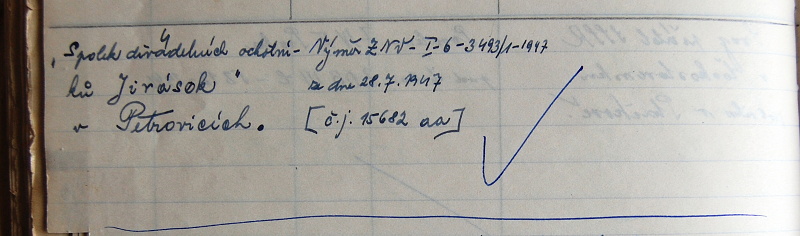 „Spolek divadelních ochotní- Výměr ZNV-I-6-3493/1-1947
ků Jirásek" ze dne 28.7.1947
v Petrovicích. [č.j. 15682 aa]